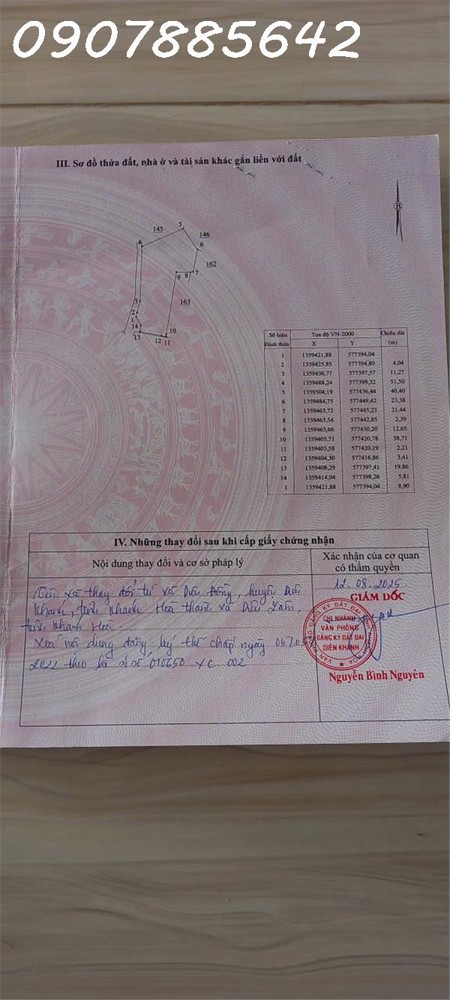 0907885642
III. Sơ đồ thửa đất, nhà ở và tài sản khác gắn liền với đất
B
145
5
146
4
6
162
9 8 7
163
3
2
1
14
10
13 12 11
Số hiệu đỉnh thửa Tọa độ VN-2000 Chiều dài (m)
X Y
1 1359421,88 577394,04
4,04
2 1359425,85 577394,80
11,27
3 1359436,77 577397,57
51,50
4 1359488,24 577399,32
40,40
5 1359504,19 577436,44
23,38
6 1359484,75 577449,42
21,44
7 1359463,72 577445,23
2,39
8 1359463,54 577442,85
12,65
9 1359463,66 577430,20
58,71
10 1359405,71 577420,78
2,21
11 1359403,58 577420,19
3,41
12 1359404,30 577416,86
19,86
13 1359408,29 577397,41
5,81
14 1359414,04 577398,26
8,90
1 1359421,88 577394,04
IV. Những thay đổi sau khi cấp giấy chứng nhận
Nội dung thay đổi và cơ sở pháp lý
Xác nhận của cơ quan có thẩm quyền
xã thay đổi từ xã Diên Đồng, huyện Diên
Khánh, tỉnh Khánh Hoà thành xã Diên
tỉnh Khánh Hoà.
Xoá nội dung đăng ký thế chấp ngày
2022 theo hồ sơ số 010650.XC.002
12.08.2025
GIÁM ĐỐC
CHI NHÁNH
VĂN PHÒNG
ĐĂNG KÝ ĐẤT ĐAI
DIÊN KHÁNH
Nguyễn Bình Nguyên